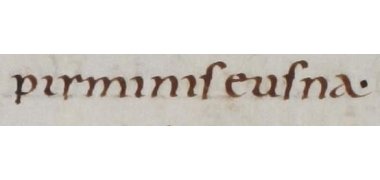 pirminiſeuſna·